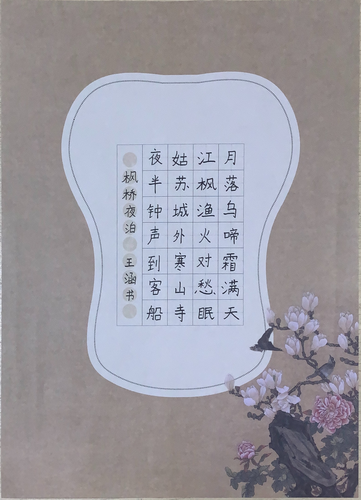 月落乌啼霜满天
江枫渔火对愁眠
姑苏城外寒山寺
夜半钟声到客船
枫桥夜泊 王涵书